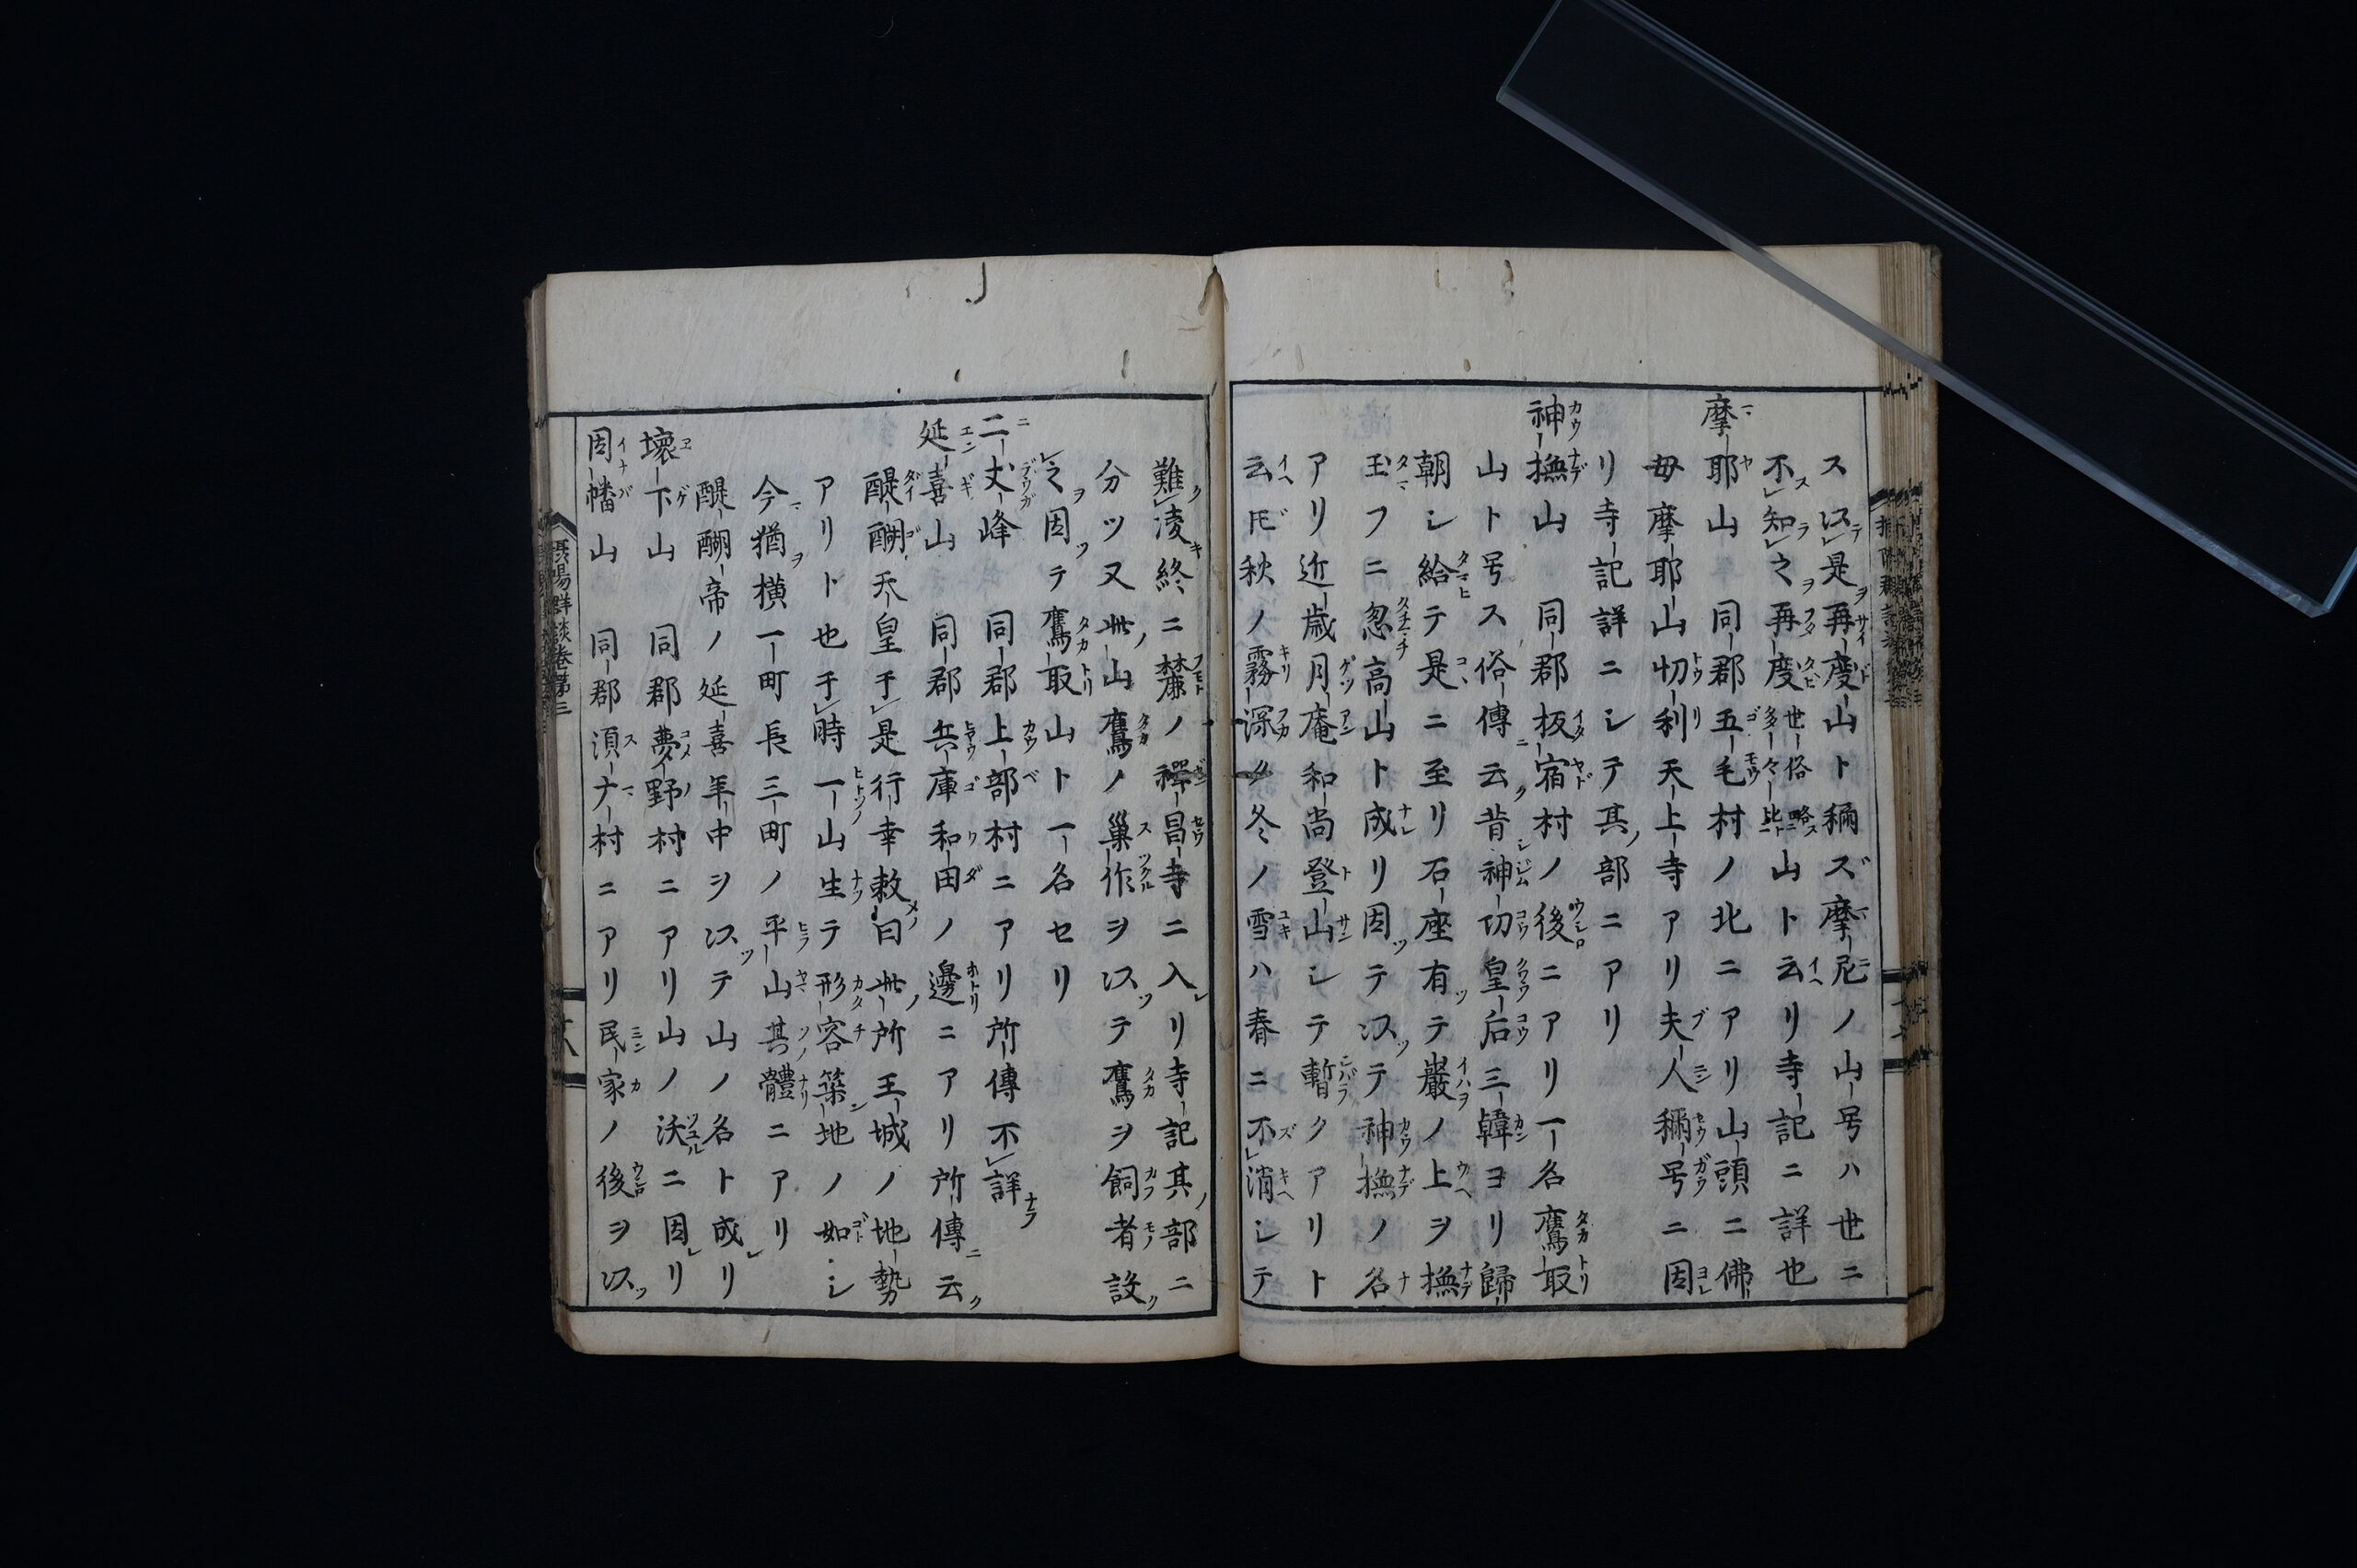 ス以是再度山ト稱ズ摩尼ノ山号ハ世ニ
不知之再度世俗略ス多々比ト山ト云リ寺記ニ詳也
摩耶山 同郡五毛村ノ北ニアリ山頭ニ佛
母摩耶山忉利天上寺アリ夫人稱号ニ因
リ寺記詳ニシテ其部ニアリ
神撫山 同郡板宿村ノ後ニアリ一名鷹取
山ト号ス俗傳云昔神功皇后三韓ヨリ歸
朝シ給テ是ニ至リ石座有テ巖ノ上ヲ撫
玉フニ忽高山ト成リ因テ以テ神撫ノ名
アリ近歳月庵和尚登山シテ暫クアリト
云𪜈秋ノ霧深ク冬ノ雪ハ春ニ不消シテ
難凌終ニ麓ノ禪昌寺ニ入リ寺記其部ニ
分ツ又此山鷹ノ巢作ヲ以テ鷹ヲ飼者設
之因テ鷹取山ト一名セリ
二丈峰 同郡上部村ニアリ所傳不詳
延喜山 同郡兵庫和田ノ邊ニアリ所傳云
醍醐天皇于是行幸敕曰此所王城ノ地勢
アリト也于時一山生テ形容築地ノ如シ
今猶横一町長三町ノ平山其體ニアリ
醍醐帝ノ延喜年中ヲ以テ山ノ名ト成リ
壞下山 同郡夢野村ニアリ山ノ沃ニ因リ
因幡山 同郡須广村ニアリ民家ノ後ヲ以
攝陽群談巻第三